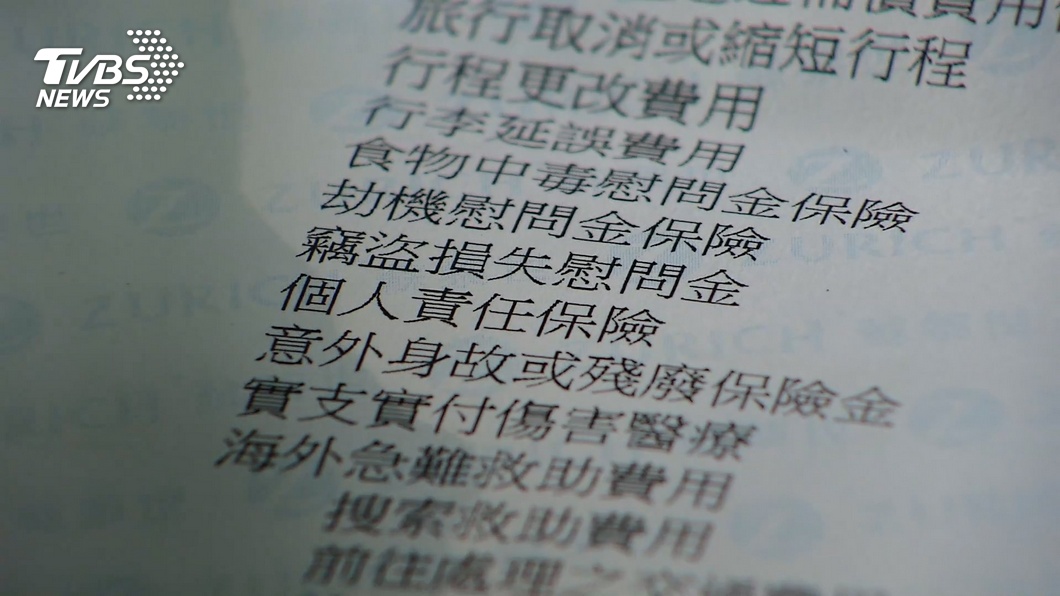 TVBS
NEWS
補償費用
旅行取消或縮短行程
行程更改費用
行李延誤費用
食物中毒慰問金保險
劫機慰問金保險
竊盜損失慰問金
個人責任保險
意外身故或殘廢保險金
實支實付傷害醫療
海外急難救助費用
搜索救助費用
前往處理之交通費用
ZURICH
ZURICH
ZURICH